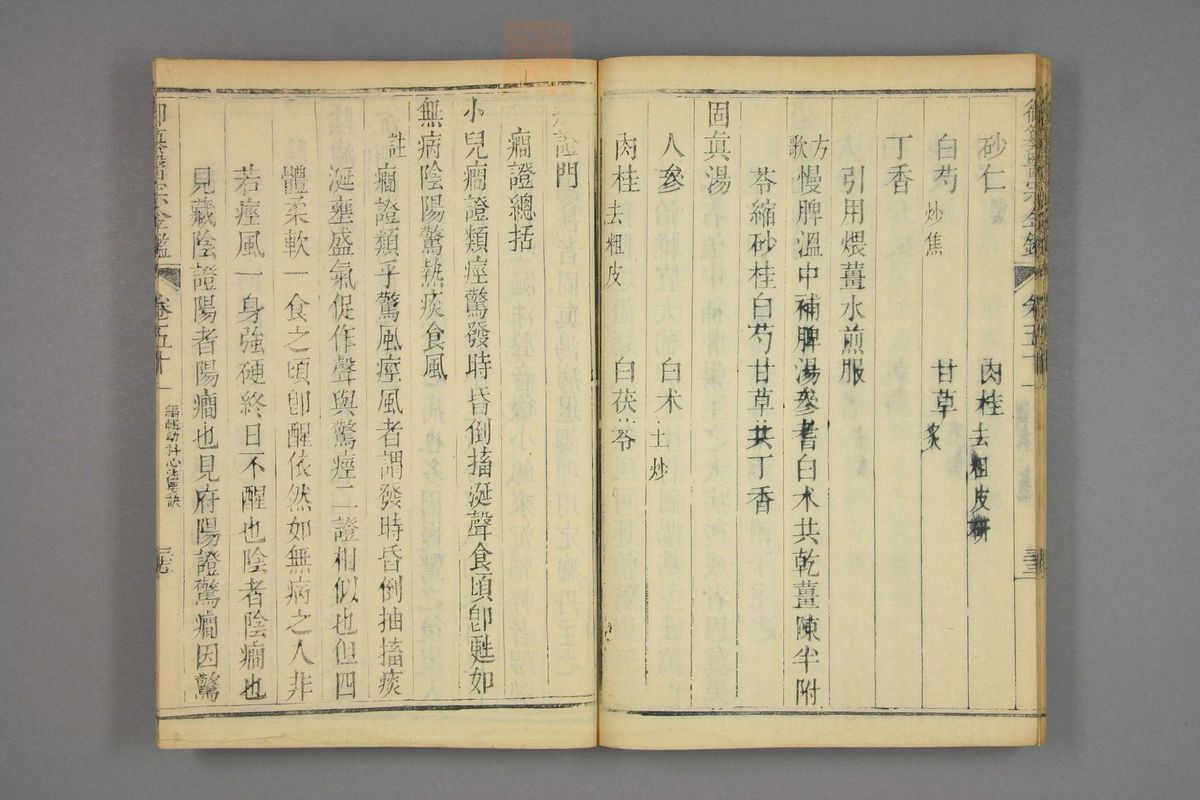 砂仁　肉桂去粗皮研
白芍炒焦　甘草炙
丁香
引用煨薑水煎服
方歌　慢脾溫中補脾湯參耆白朮共乾薑陳半附
苓縮砂桂白芍甘草共丁香
固眞湯
人參　白朮土炒
肉桂去粗皮　白茯苓
證門
癎證總括
小兒癎證類痙驚發時昏倒搐涎聲食頃卽甦如
無病陰陽驚熱痰食風
註　癎證類乎驚風痙風者謂發時昏倒抽搐痰
涎壅盛氣促作聲與驚痙二證相似也但四
體柔軟一食之頃卽醒依然如無病之人非
若痙風一身強硬終日不醒也陰者陰癎也
見藏陰證陽者陽癎也見府陽證驚癎因驚
御纂醫宗金鑑　卷五十一　編輯幼科心法要訣